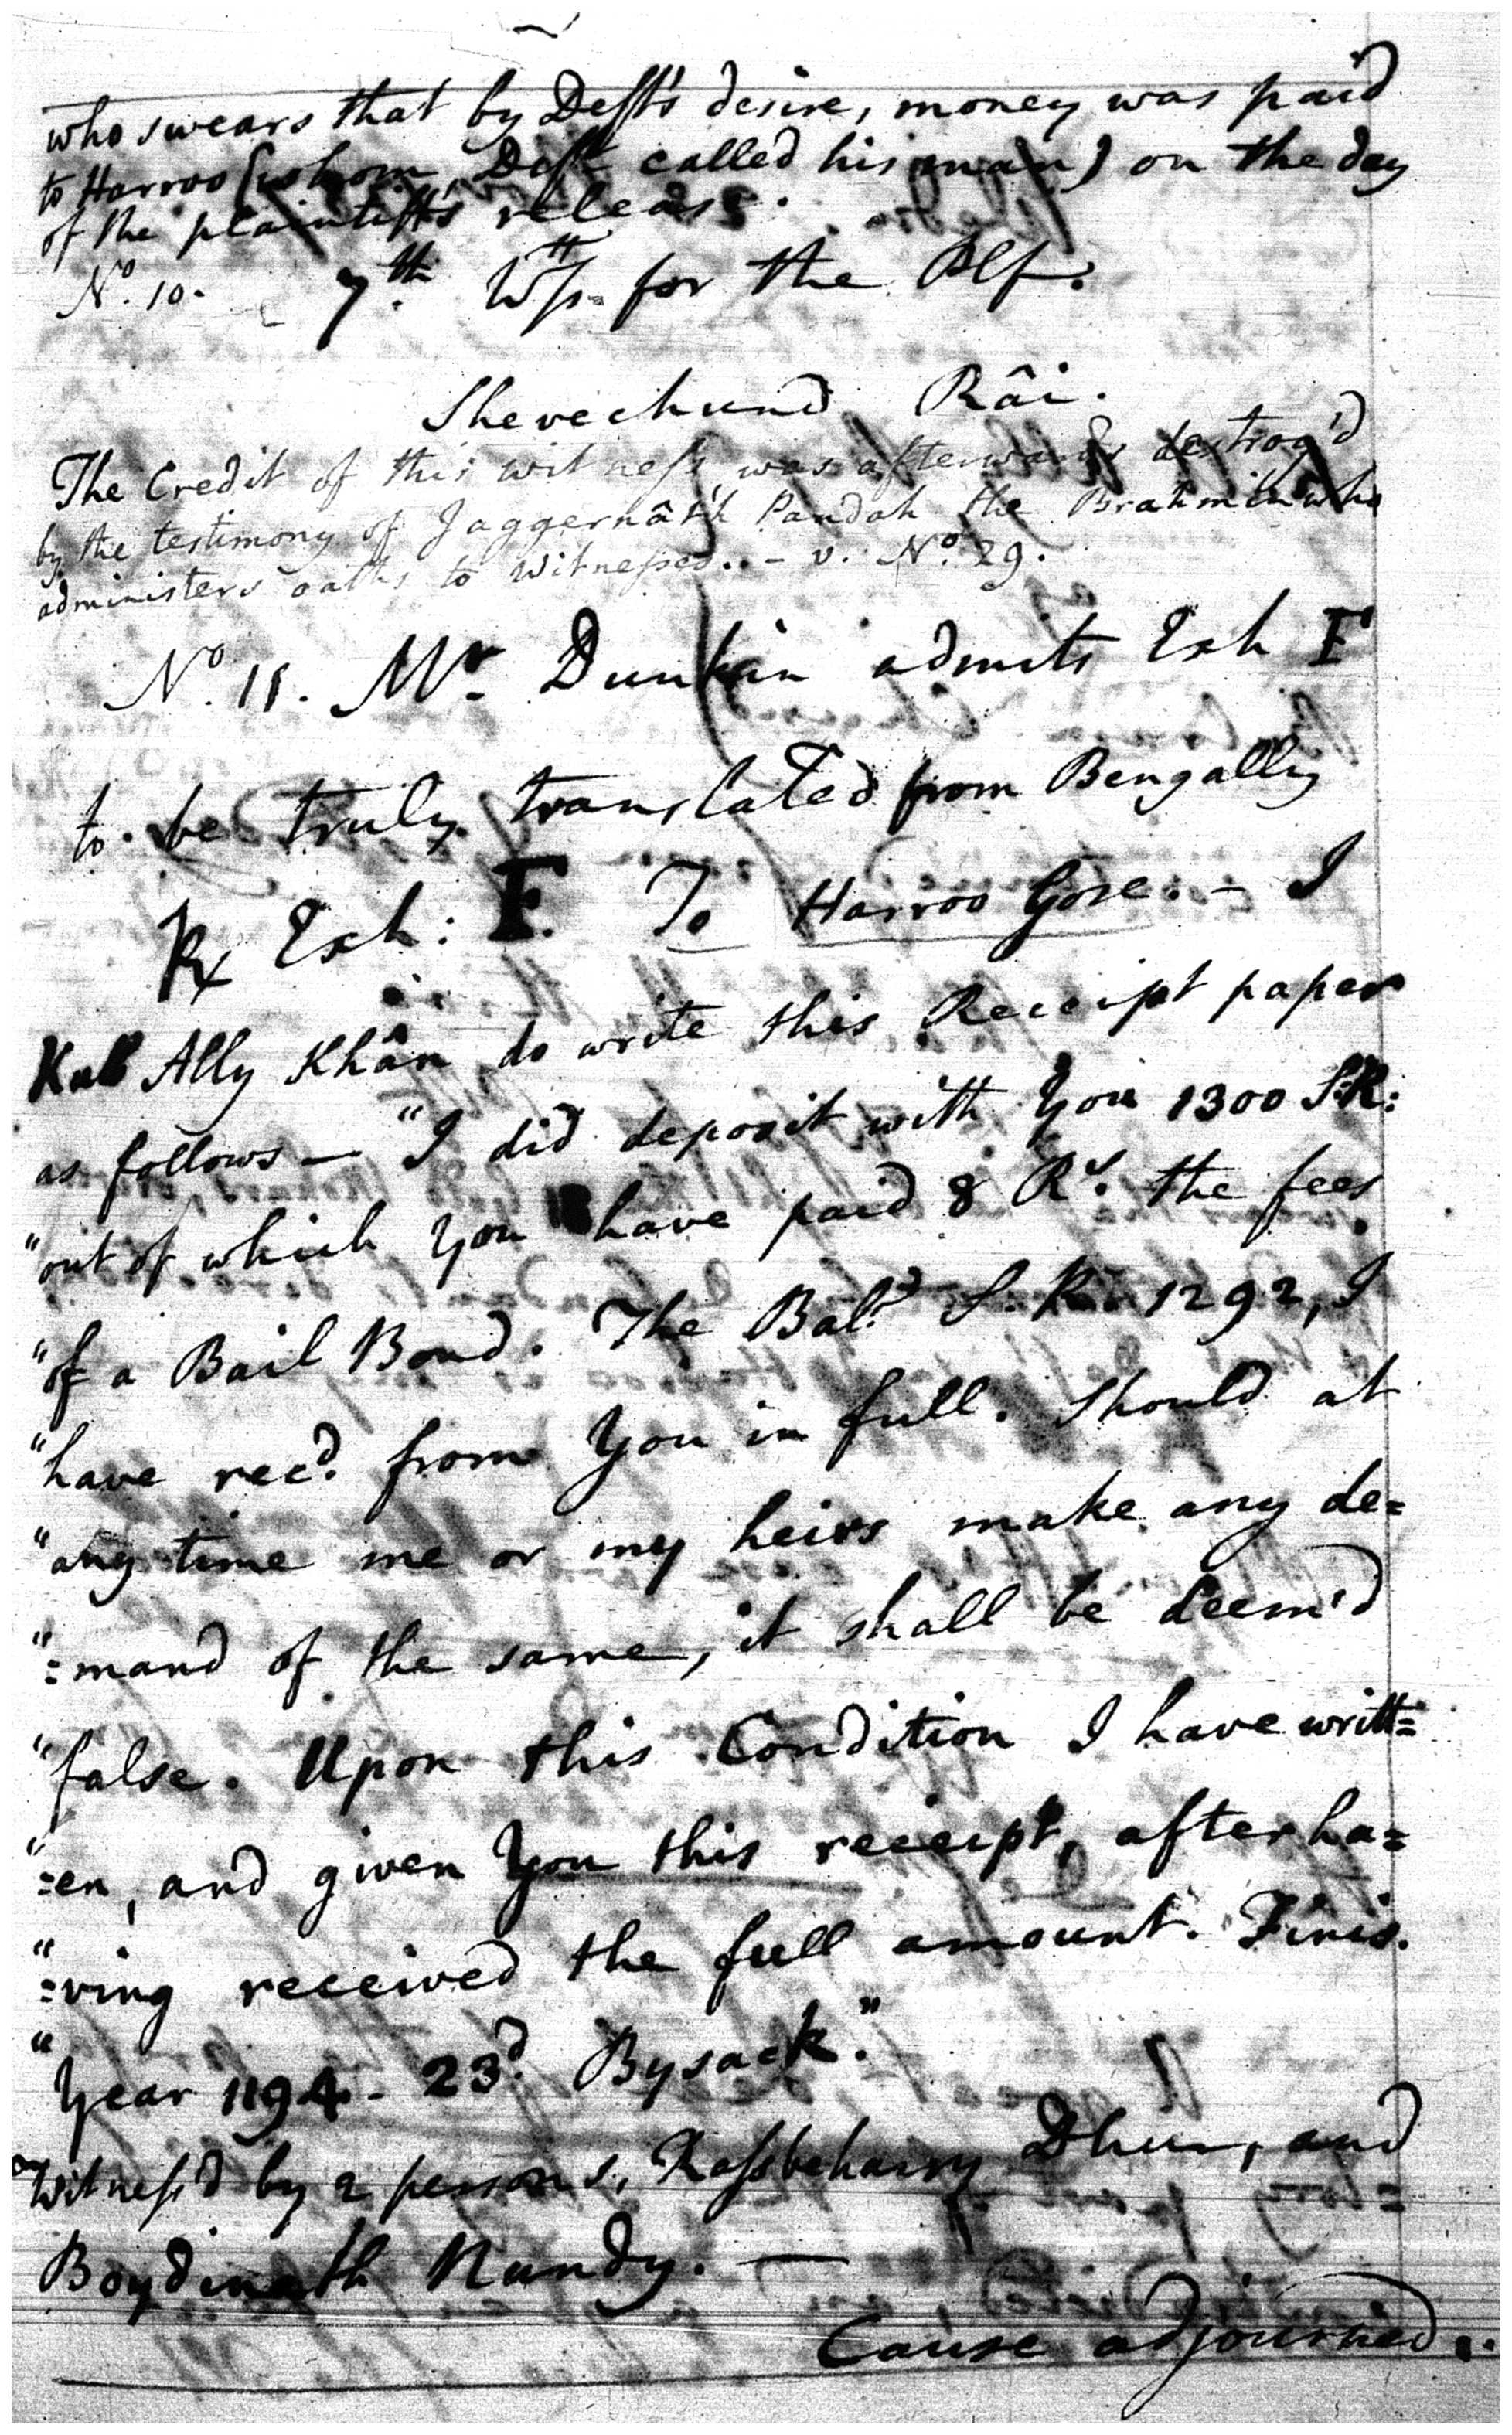 who swears that by Deft's desire, money was paid
to Harroo (whom Deft called his man) on the day
of the plaintiff's release.
No. 10. 7th Wts. for the Plf.
Shevechund Râi.
The Credit of this witness was afterwards destroy'd
by the testimony of Jaggernâth Pandah the Brahmin who
administers oaths to witnesses. - v. No. 29.
No. 11. Mr. Dunkin admits Exh F
to be truly translated from Bengally
Rx Exh: F. To Harroo Gose. - I
Kub Ally Khân do write this Receipt paper
as follows — "I did deposit with You 1300 S.R:
"out of which You have paid 8 Rs. the fees
"of a Bail Bond. The Bale. S. R. 1292, I
"have recd. from You in full. Should at
"any time me or my heirs make any de=
"=mand of the same, it shall be deem'd
"false. Upon this Condition I have writt=
"=en, and given You this receipt, after ha=
"=ving received the full amount. Finis.
"Year 1194 - 23d. Bysack."
Witness'd by 2 persons, Rassbeharry Dhur, and
Boydinath Nundy. —
Cause adjourned.